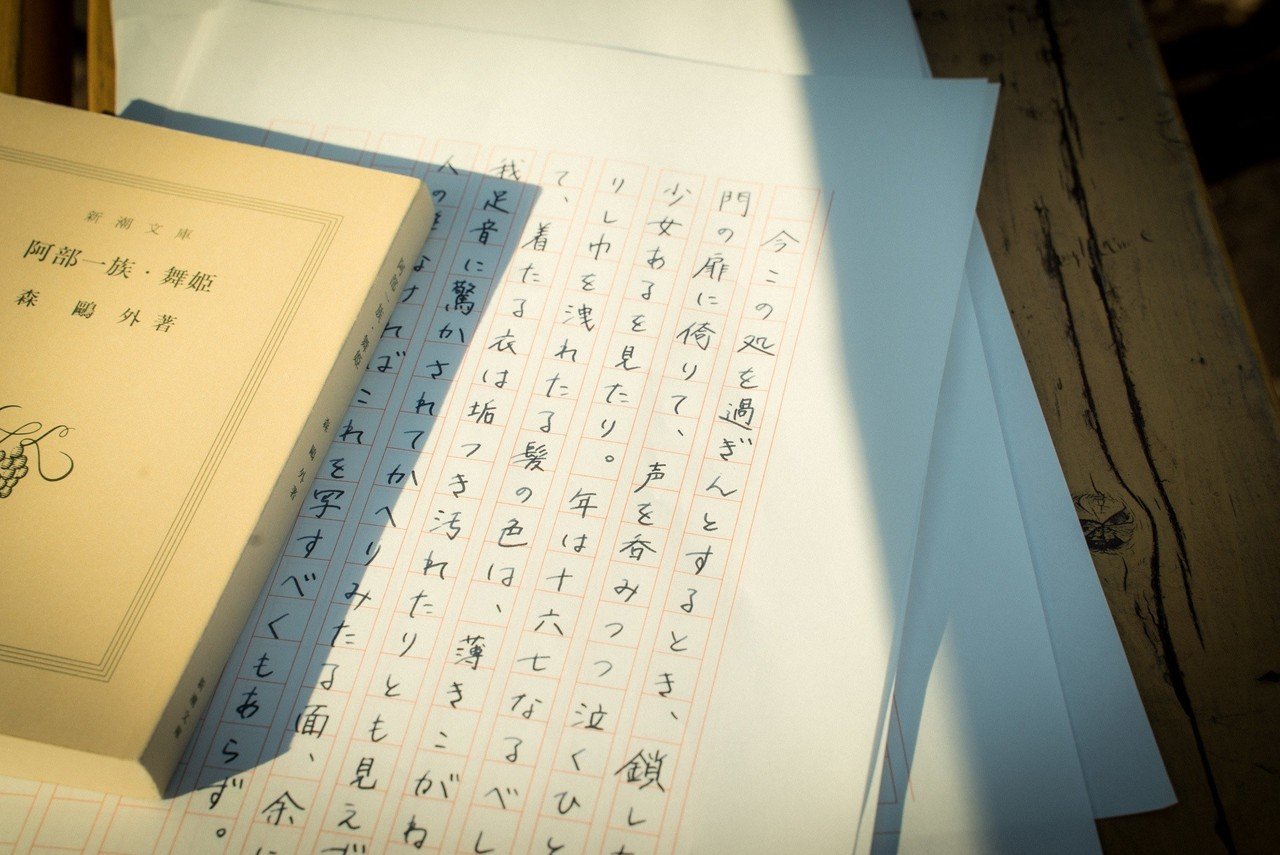 新潮文庫
阿部一族・舞姫
森鷗外著
阿部一族・舞姫 森鷗外著 新潮文庫
今この処を過ぎんとするとき、鎖した
門の扉に倚りて、声を呑みつつ泣くひと
少女あるを見たり。年は十六七なるべし
りし巾を洩れたる髪の色は、薄きこがね
て、着たる衣は垢つき汚れたりとも見えず
我足音に驚かされてかへりみたる面、余に
人のなければこれを写すべくもあらず。